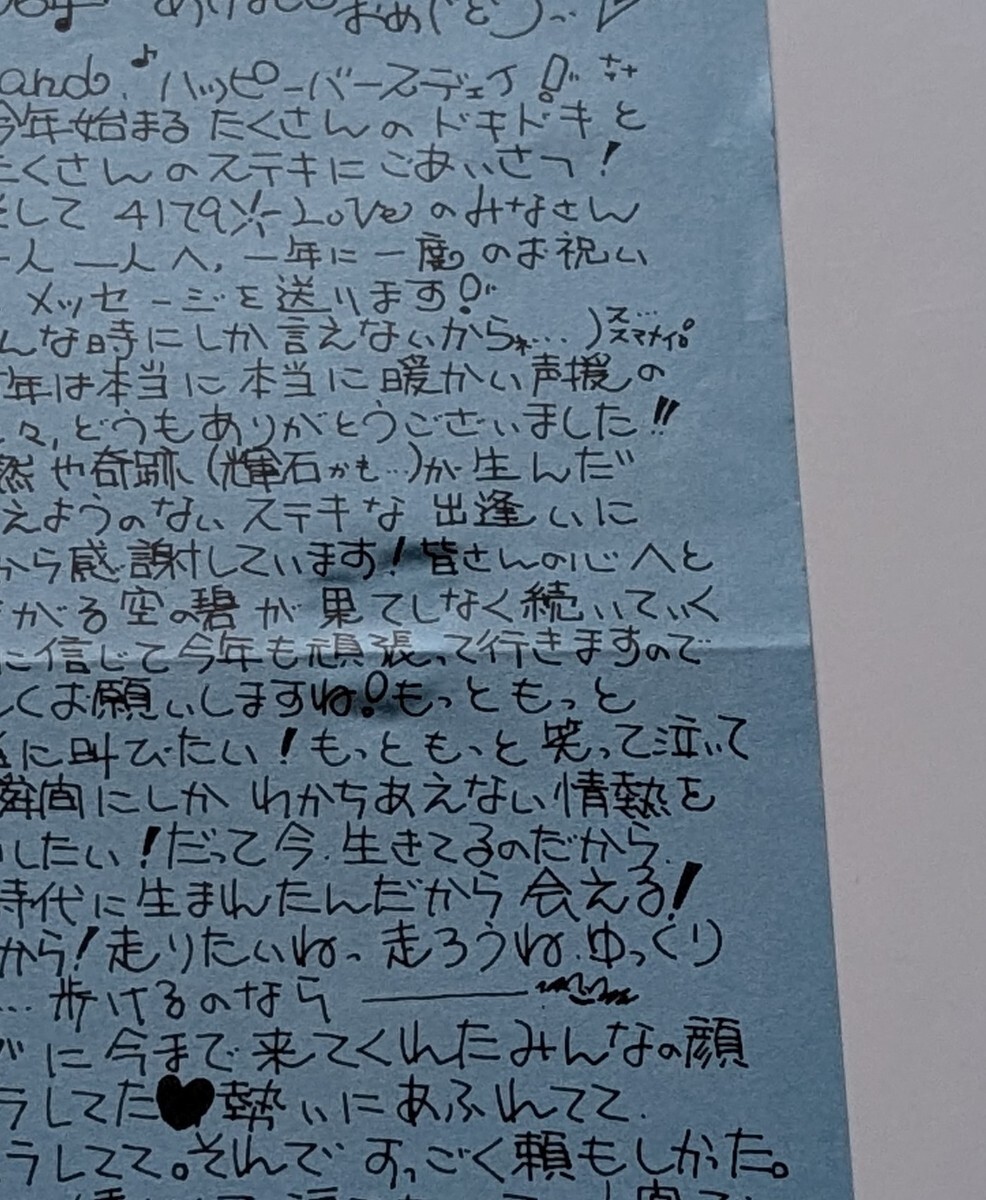 おめでとう
and ♪ハッピーバースデェイ!!
今年始まるたくさんのドキドキと
たくさんのステキにごあいさつ!
そして 4179 Loveのみなさん
一人一人へ,一年に一度のお祝い
メッセージを送ります!!
んな時にしか言えないからネ…)ス…スマナイ。
年は本当に本当に暖かい声援の
々,どうもありがとうございました!!
然や奇跡(輝石かも…)が生んだ
えようのないステキな出逢いに
から感謝しています!皆さんの心へと
がる空の碧が果てしなく続いていく
に信じて今年も頑張って行きますので
しくお願いしますね!もっともっと
に叫びたい!もっともっと笑って泣いて
瞬間にしかわかちあえない情熱を
したい!だって今.生きてるのだから.
時代に生まれたんだから会える!
から!走りたいね。走ろうね.ゆっくり
…歩けるのなら――
に今まで来てくれたみんなの顔
ラしてた♥勢いにあふれてて.
ラしてて。それですっごく頼もしかった。